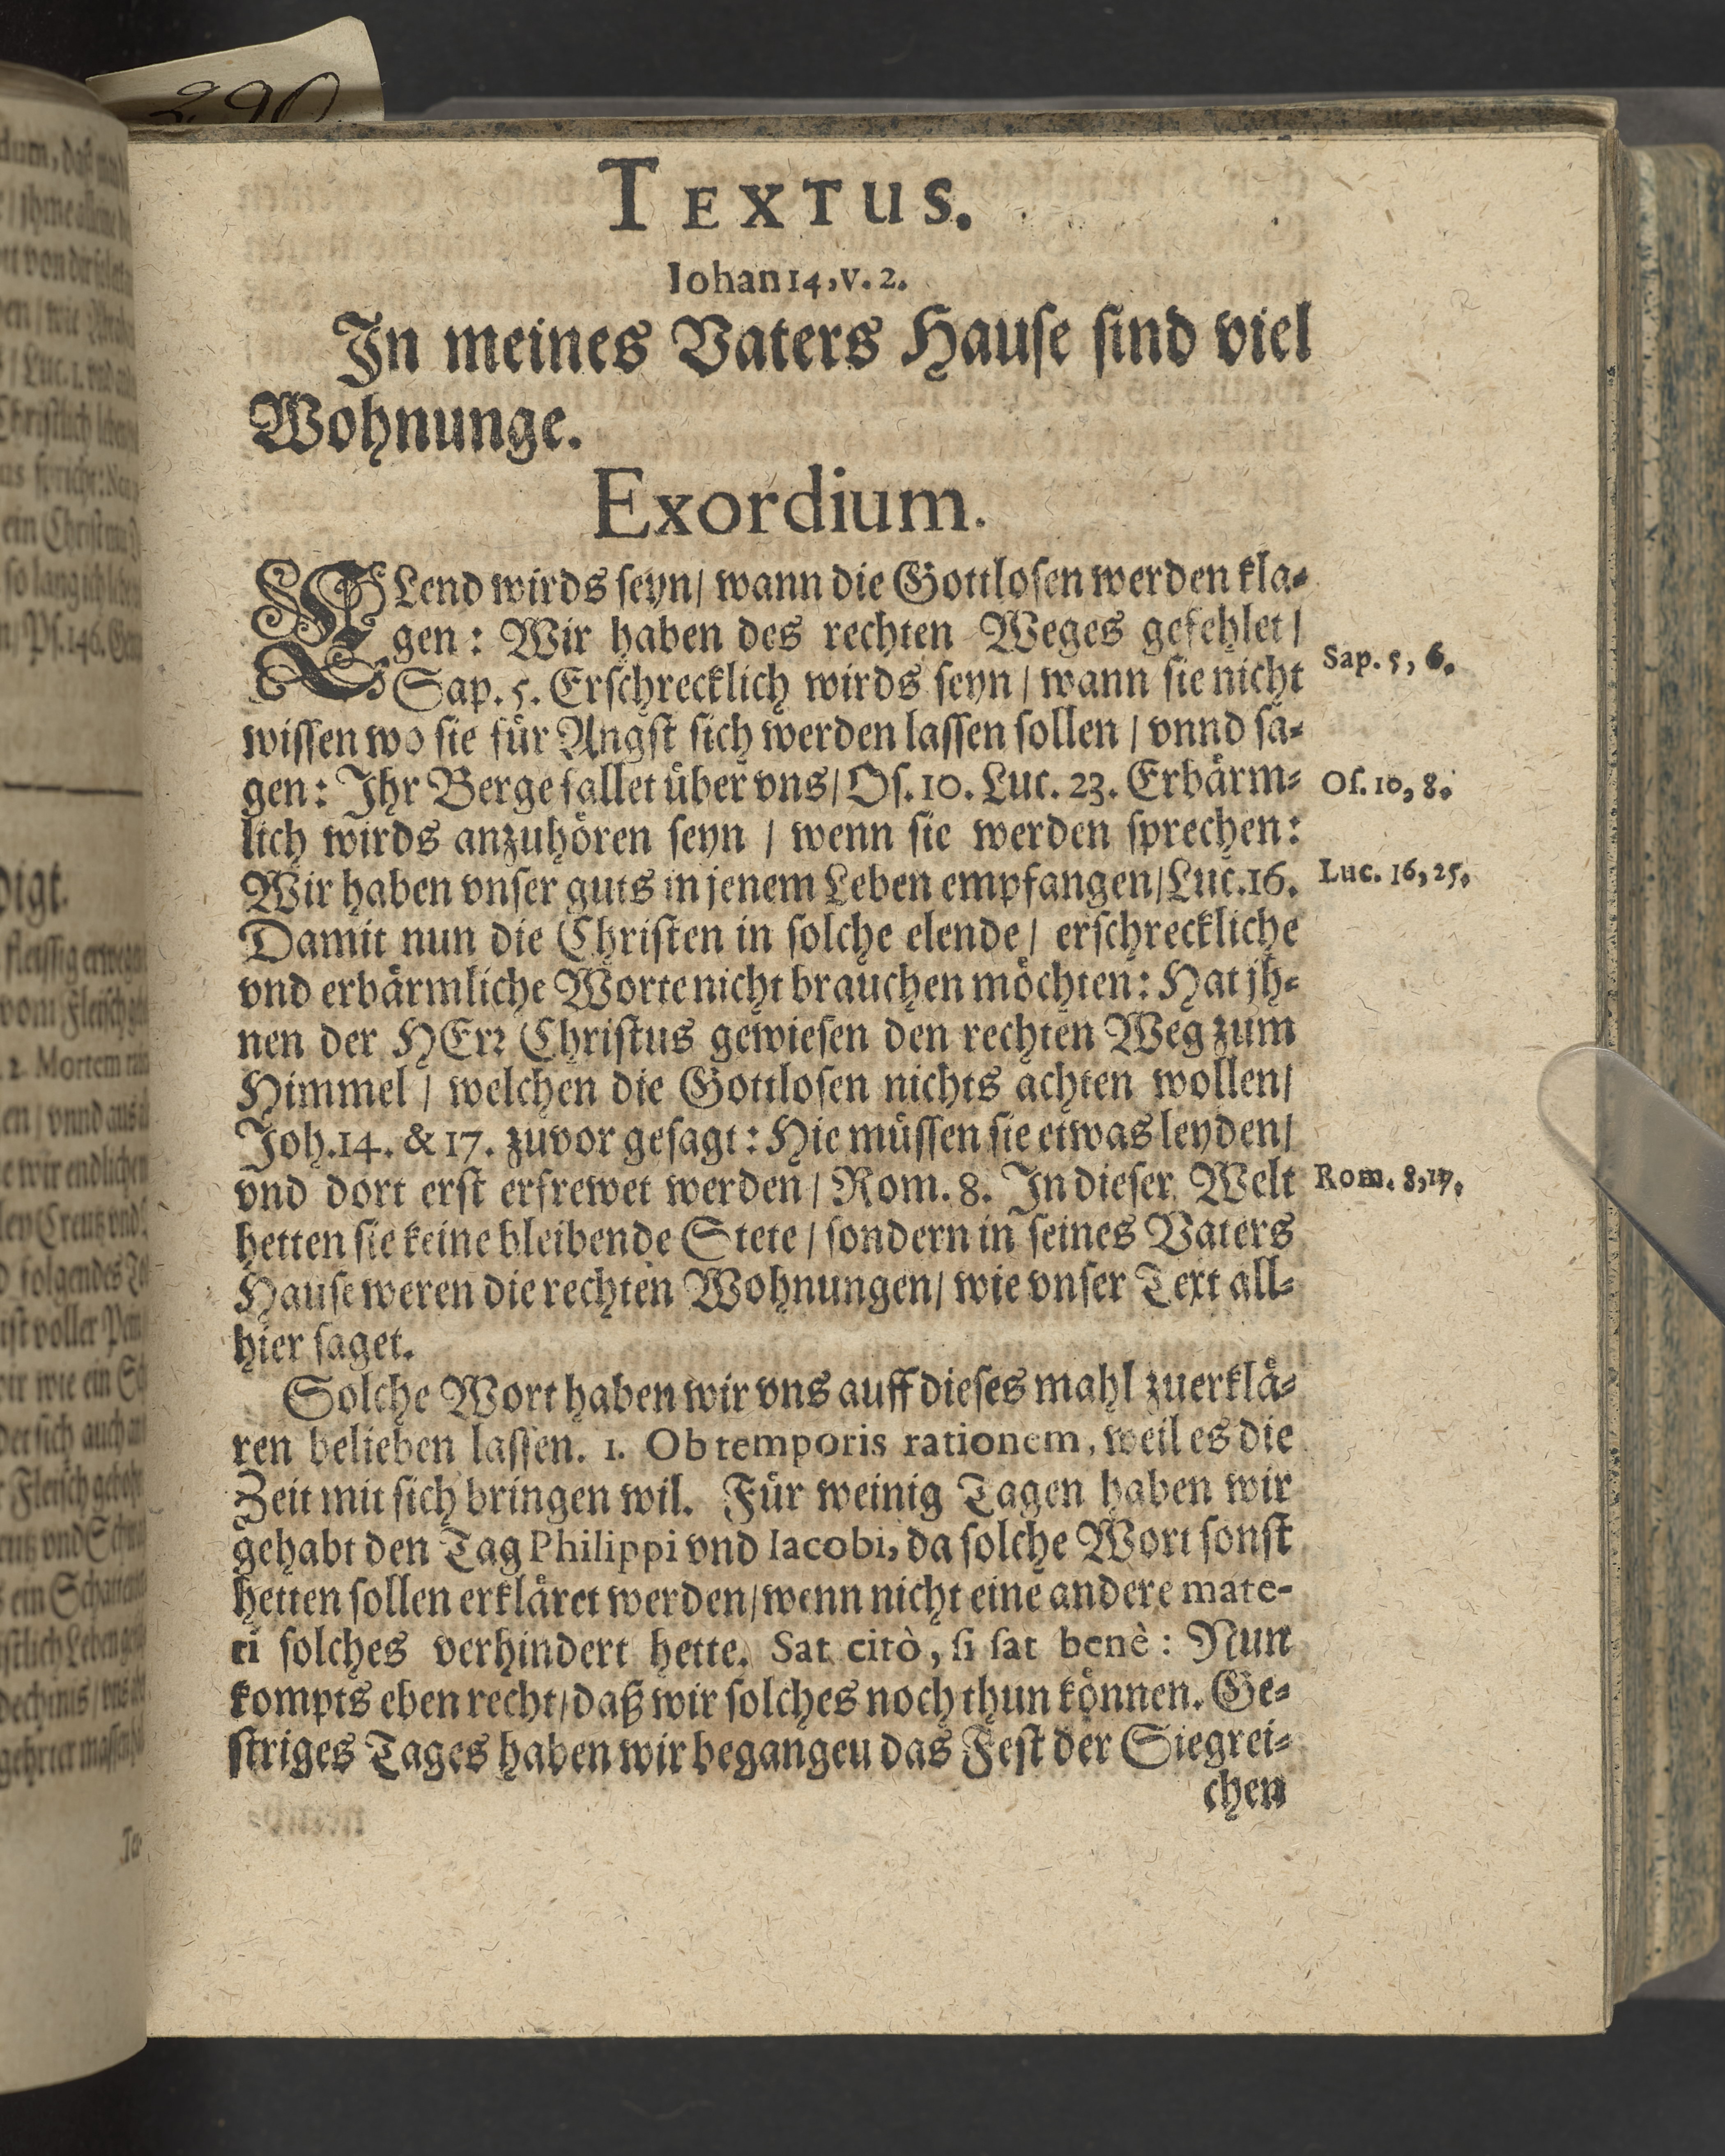 290
TEXTUS.
Iohan 14, v. 2.
In meines Vaters Hauſe ſind viel
Wohnunge.
Exordium.
ELend wirds ſeyn / wann die Gottloſen werden kla⸗
gen: Wir haben des rechten Weges gefehlet /
Sap. 5. Erſchrecklich wirds ſeyn / wann ſie nicht
Sap. 5, 6.
wiſſen wo ſie fuͤr Angſt ſich werden laſſen ſollen / vnnd ſa⸗
gen: Ihr Berge fallet uͤber vns / Oſ. 10. Luc. 23. Erbaͤrm⸗
Oſ. 10, 8.
lich wirds anzuhoͤren ſeyn / wenn ſie werden ſprechen:
Wir haben vnſer guts in jenem Leben empfangen / Luc. 16.
Luc. 16, 25.
Damit nun die Chriſten in ſolche elende / erſchreckliche
vnd erbaͤrmliche Worte nicht brauchen moͤchten: Hat jh⸗
nen der HErꝛ Chriſtus gewieſen den rechten Weg zum
Himmel / welchen die Gottloſen nichts achten wollen /
Joh. 14. & 17. zuvor geſagt: Hie muͤſſen ſie etwas leyden /
vnd dort erſt erfrewet werden / Rom. 8. In dieſer Welt
Rom. 8, 17.
hetten ſie keine bleibende Stete / ſondern in ſeines Vaters
Hauſe weren die rechten Wohnungen / wie vnſer Text all⸗
hier ſaget.
Solche Wort haben wir vns auff dieſes mahl zuerklaͤ⸗
ren belieben laſſen. 1. Ob temporis rationem, weil es die
Zeit mit ſich bringen wil. Fuͤr weinig Tagen haben wir
gehabt den Tag Philippi vnd Iacobi, da ſolche Wort ſonſt
hetten ſollen erklaͤret werden / wenn nicht eine andere mate-
ri ſolches verhindert hette. Sat citò, ſi ſat benè: Nun
kompts eben recht / daß wir ſolches noch thun koͤnnen. Ge⸗
ſtriges Tages haben wir begangeu das Feſt der Siegrei⸗
chen